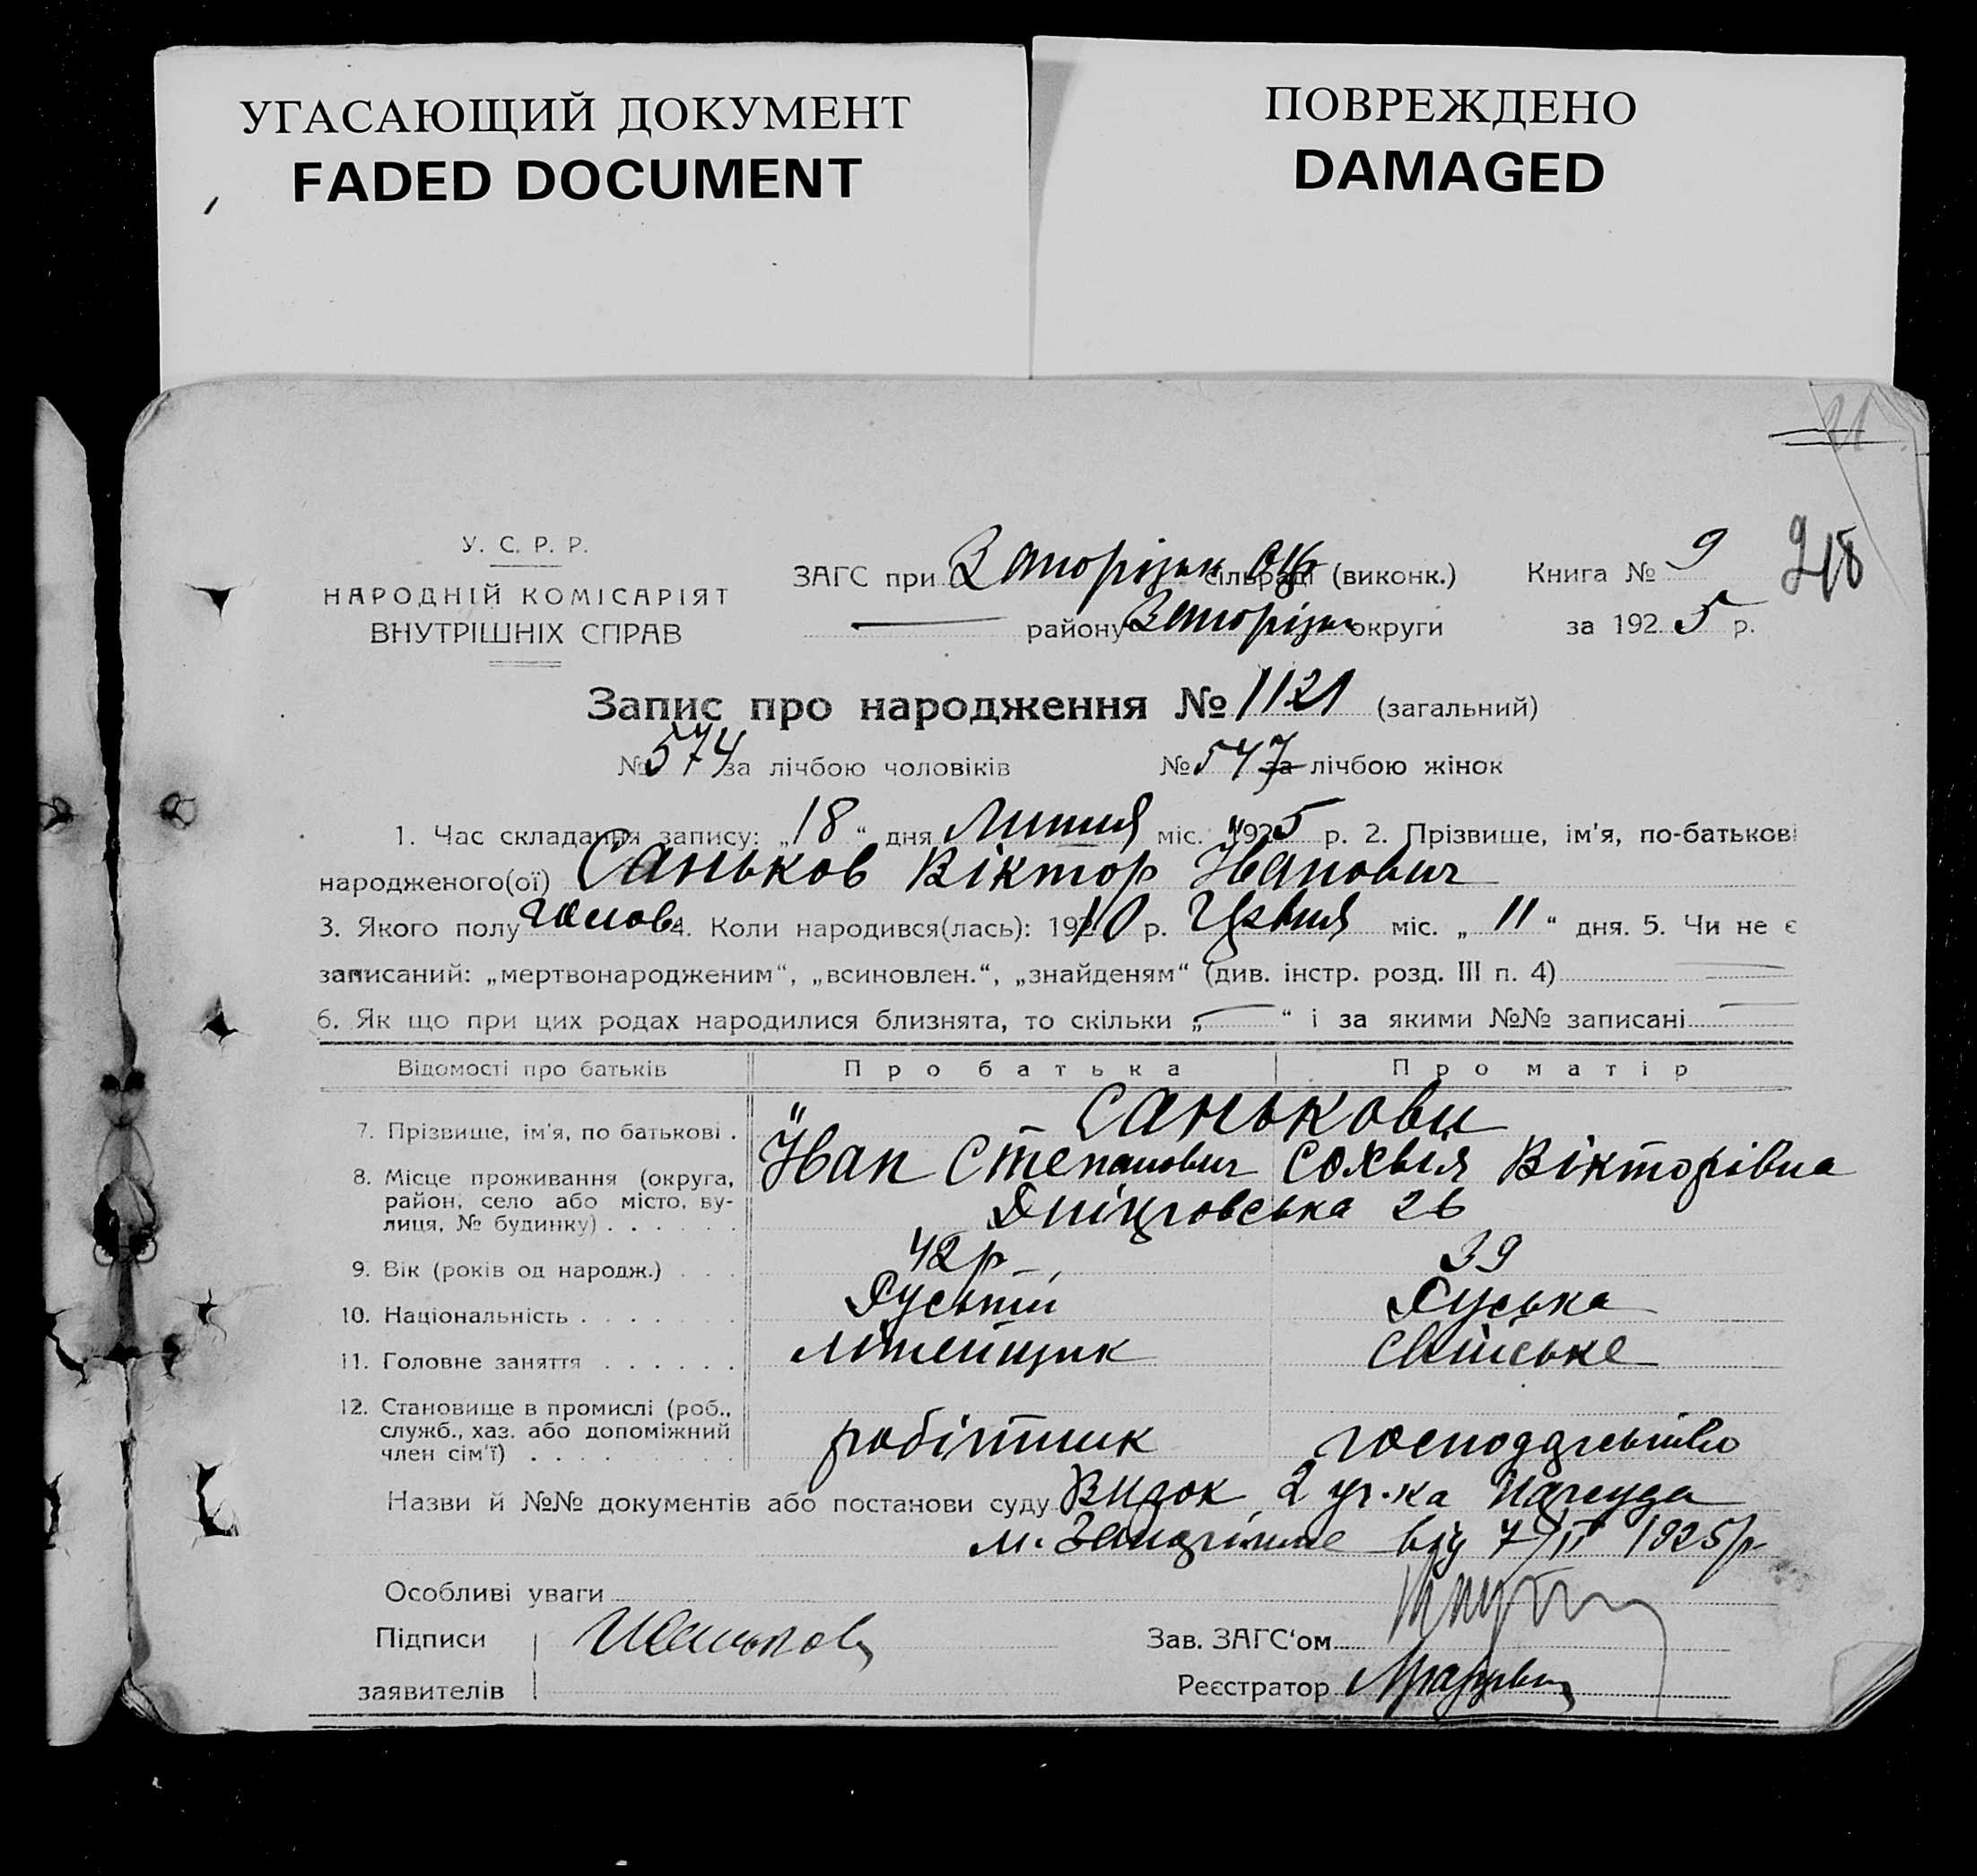 УГАСАЮЩИЙ ДОКУМЕНТ
FADED DOCUMENT
ПОВРЕЖДЕНО
DAMAGED
У. С. Р. Р.
НАРОДНІЙ КОМІСАРІЯТ
ВНУТРІШНІХ СПРАВ
ЗАГС при Запорізьк. сільраді (виконк.) Книга № 9
району Запорізьк округи за 1925 р.
218
Запис про народження № 1121 (загальний)
№ 574 за лічбою чоловіків № 547 за лічбою жінок
1. Час складання запису: „18“ дня Липня міс. 1925 р. 2. Прізвище, ім'я, по-батькові
народженого(ої) Саньков Віктор Иванович
3. Якого полу чолов. 4. Коли народився(лась): 1910 р. Цвітня міс. „11“ дня. 5. Чи не є
записаний: „мертвонародженим“, „всиновлен.“, „знайденям“ (див. інстр. розд. III п. 4)
6. Як що при цих родах народилися близнята, то скільки „—“ і за якими №№ записані
Відомості про батьків Про батька Про матір
7. Прізвище, ім'я, по батькові . Санькови
Йван Степанович Софья Вікторівна
8. Місце проживання (округа,
район, село або місто, ву-
лиця, № будинку) . . . . . . Дніпровська 26
9. Вік (років од народж.) . . . 42 р 39
10. Національність . . . . . . . Руський Руська
11. Головне заняття . . . . . . літейщик свійське
12. Становище в промислі (роб.,
служб., хаз. або допоміжний
член сім'ї) . . . . . . . . . робітник господарьство
Назви й №№ документів або постанови суду Видок 2 уч-ка Нарсуда
м. Запоріжже від 7/IV 1925 р.
Особливі уваги
Підписи
заявителів
Зав. ЗАГС‘ом
Реєстратор